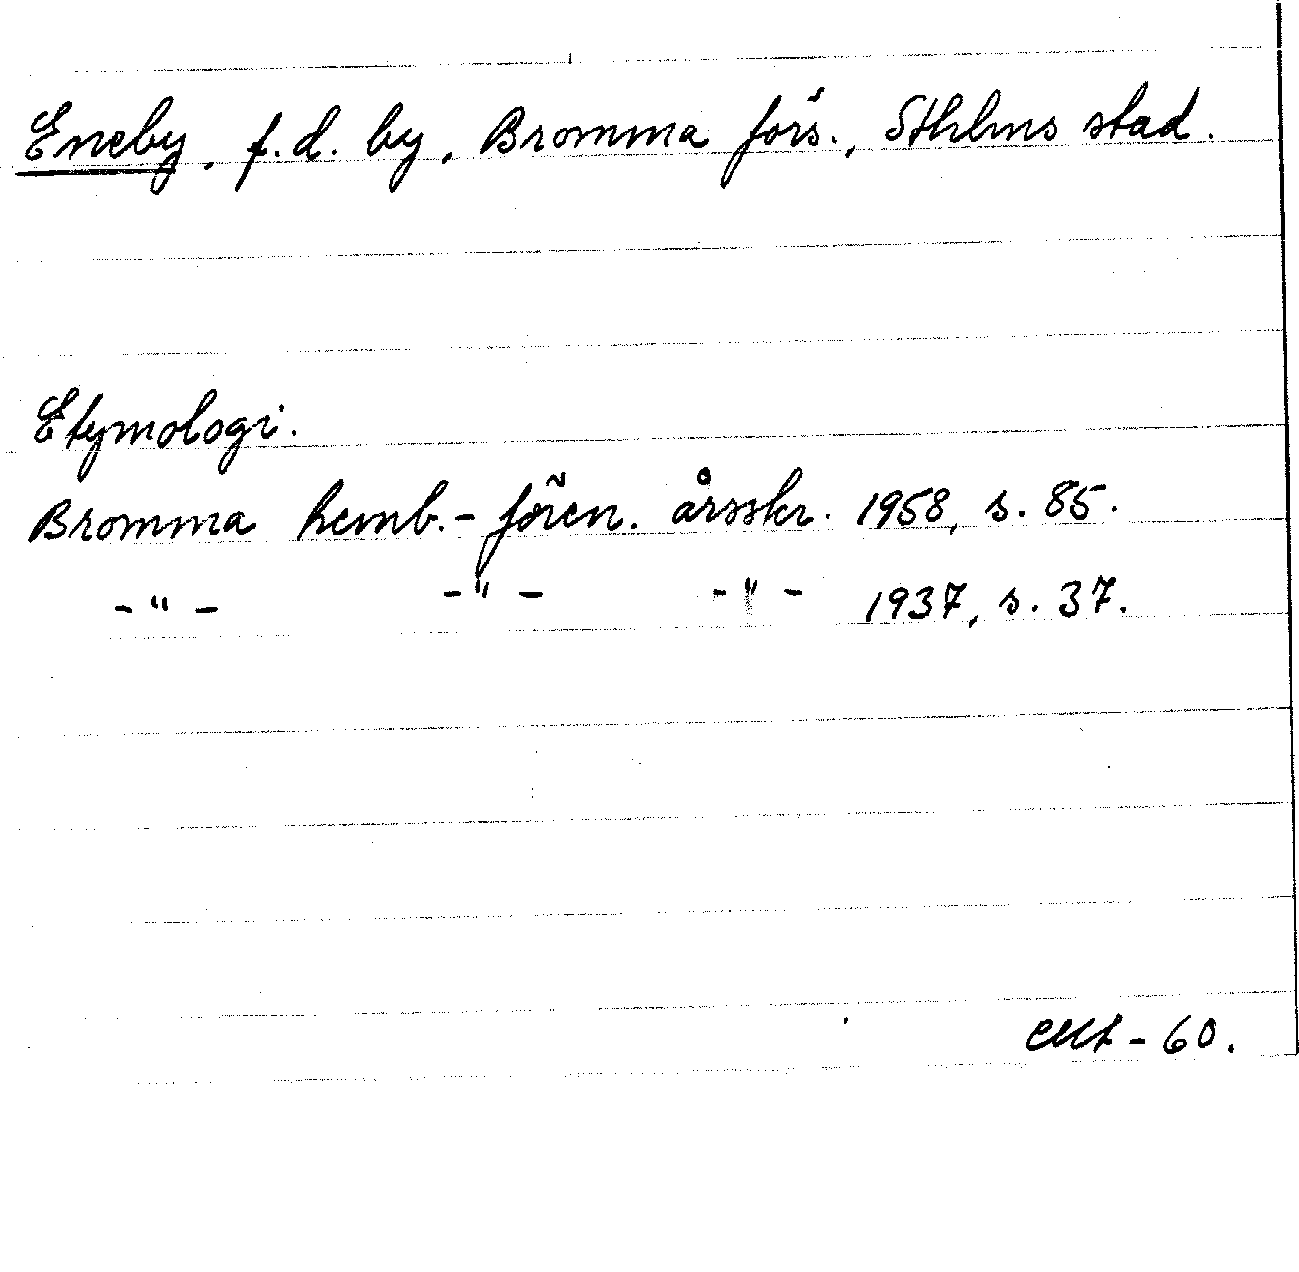 Eneby, f.d. by, Bromma förs., Sthlms stad.
Etymologi.
Bromma hemb.-fören. årsskr. 1958, s. 85.
-"- -"- -"- 1937, s. 37.
-60.